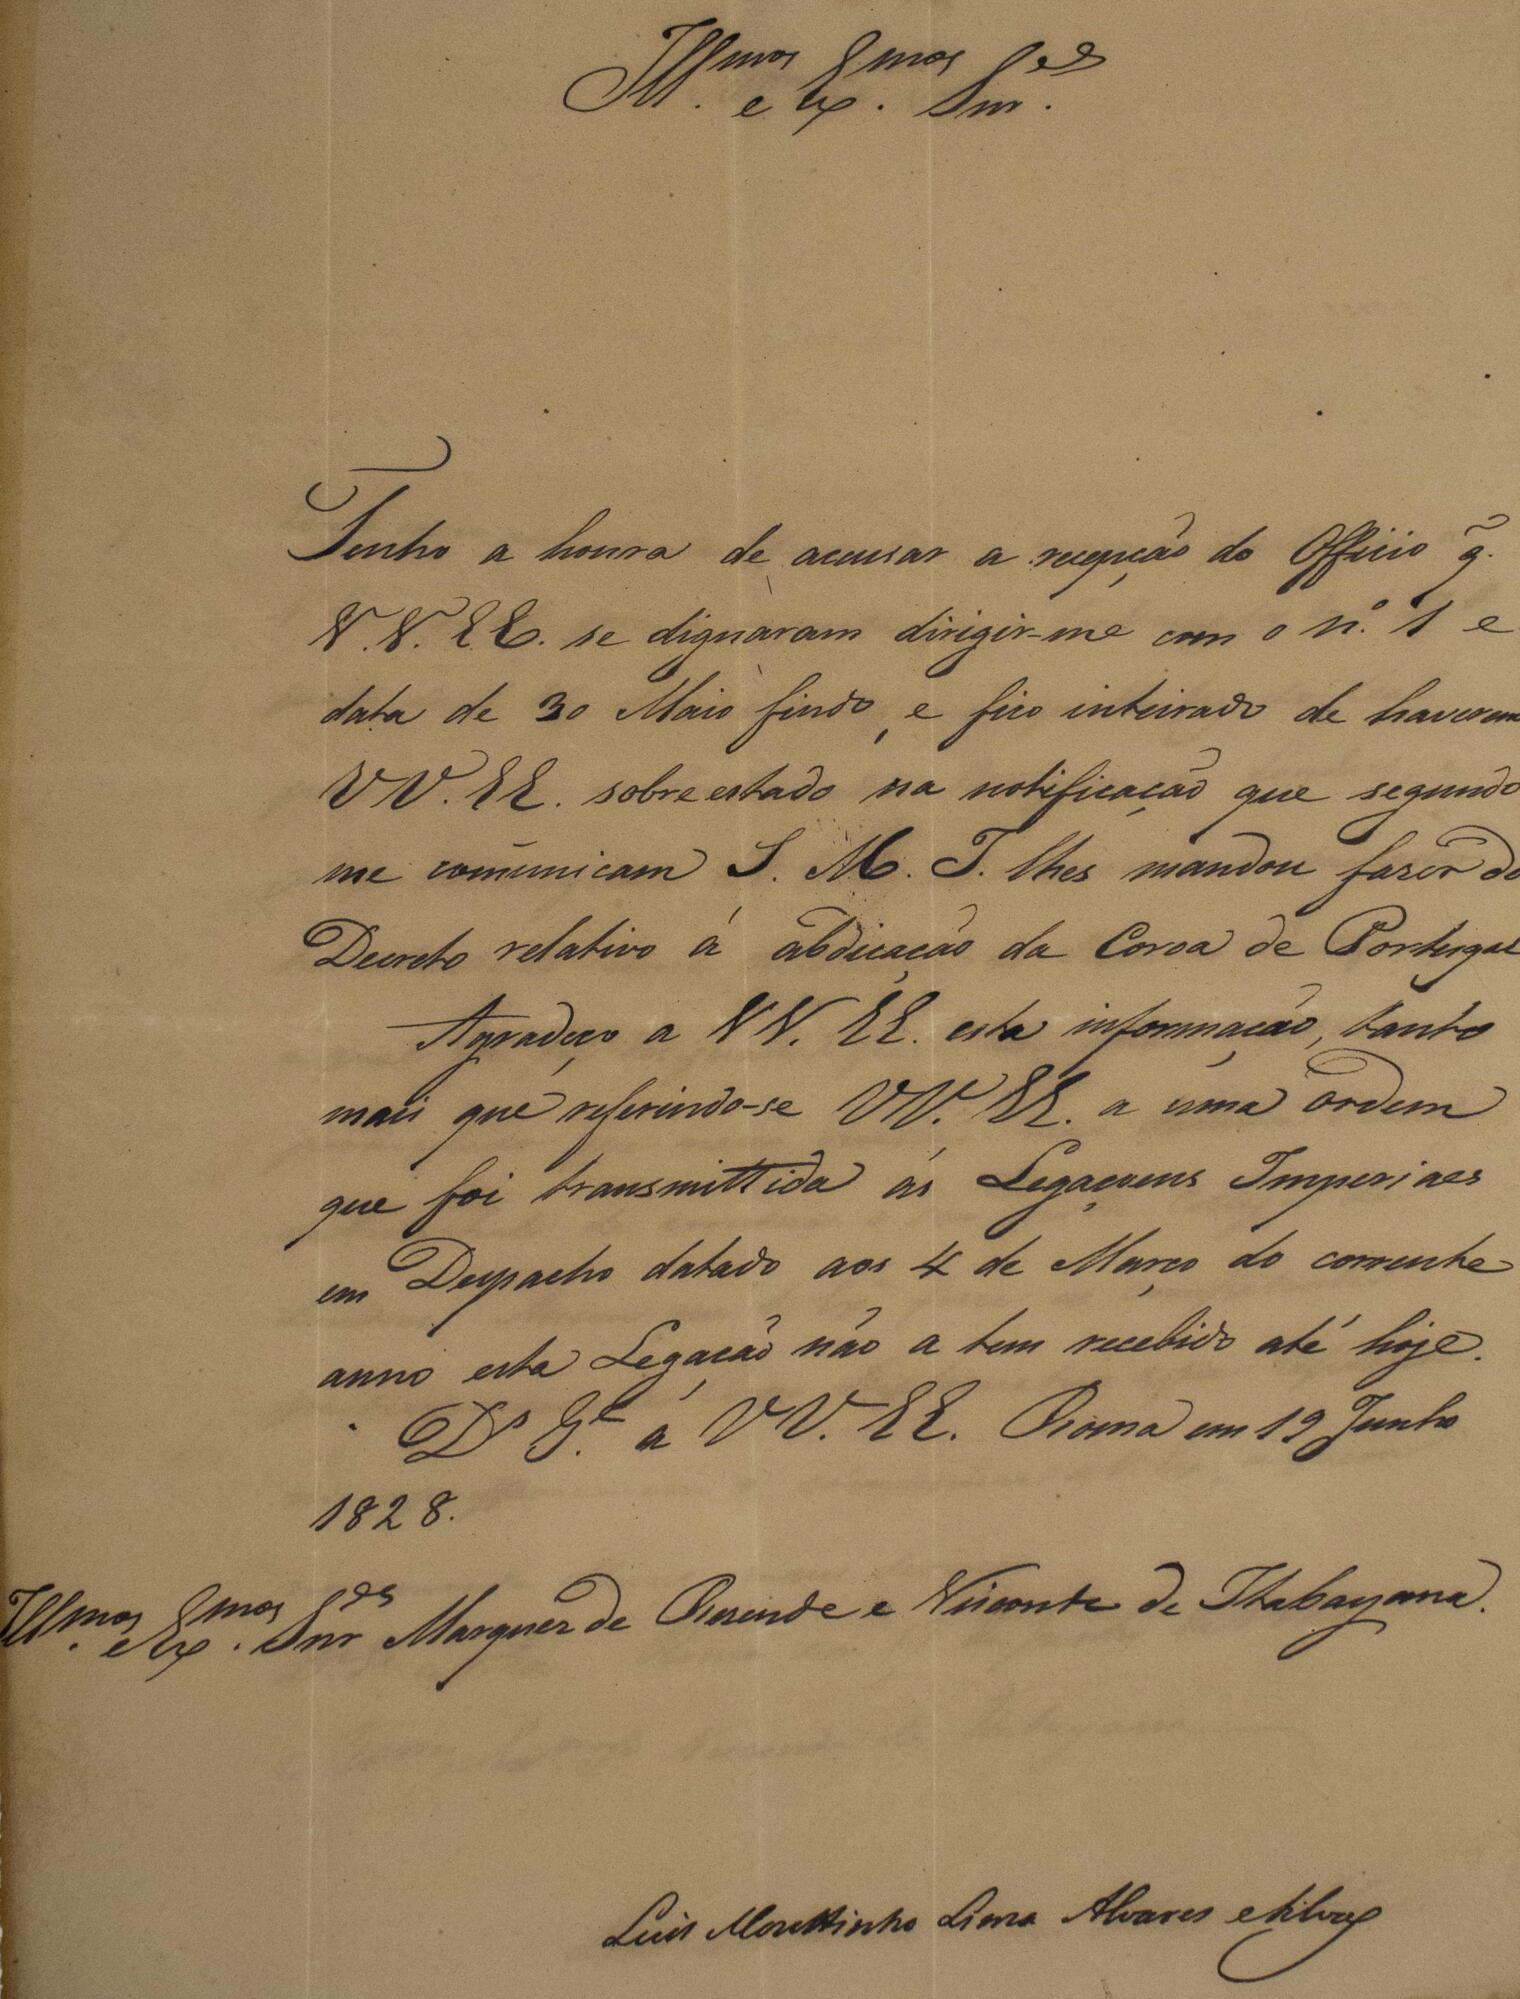 Ill.mos e Ex.mos Snr.es
Tenho a honra de accusar a recepção do Officio q̃.
V.V.EE. se dignaram dirigir-me com o nº. 1 e
data de 30 Maio findo, e fico inteirado de haverem
VV.EE. sobreestado na notificação que segundo
me comunicam S. M. I. lhes mandou faser do
Decreto relativo á abdicação da Coroa de Portugal
Agradeço a VV. EE. esta informação, tanto
mais que referindo-se VV. EE. a uma ordem
que foi transmittida ás Legaçoens Imperiaes
em Despacho datado aos 4 de Março do corrente
anno esta Legação não a tem recebido até hoje.
D.s G.e a VV. EE. Roma em 19 Junho
1828.
Ill.mos e Ex.mos Snr.es Marquez de Resende e Visconde de Itabayana.
Luis Mouttinho Lima Alvares e Silva